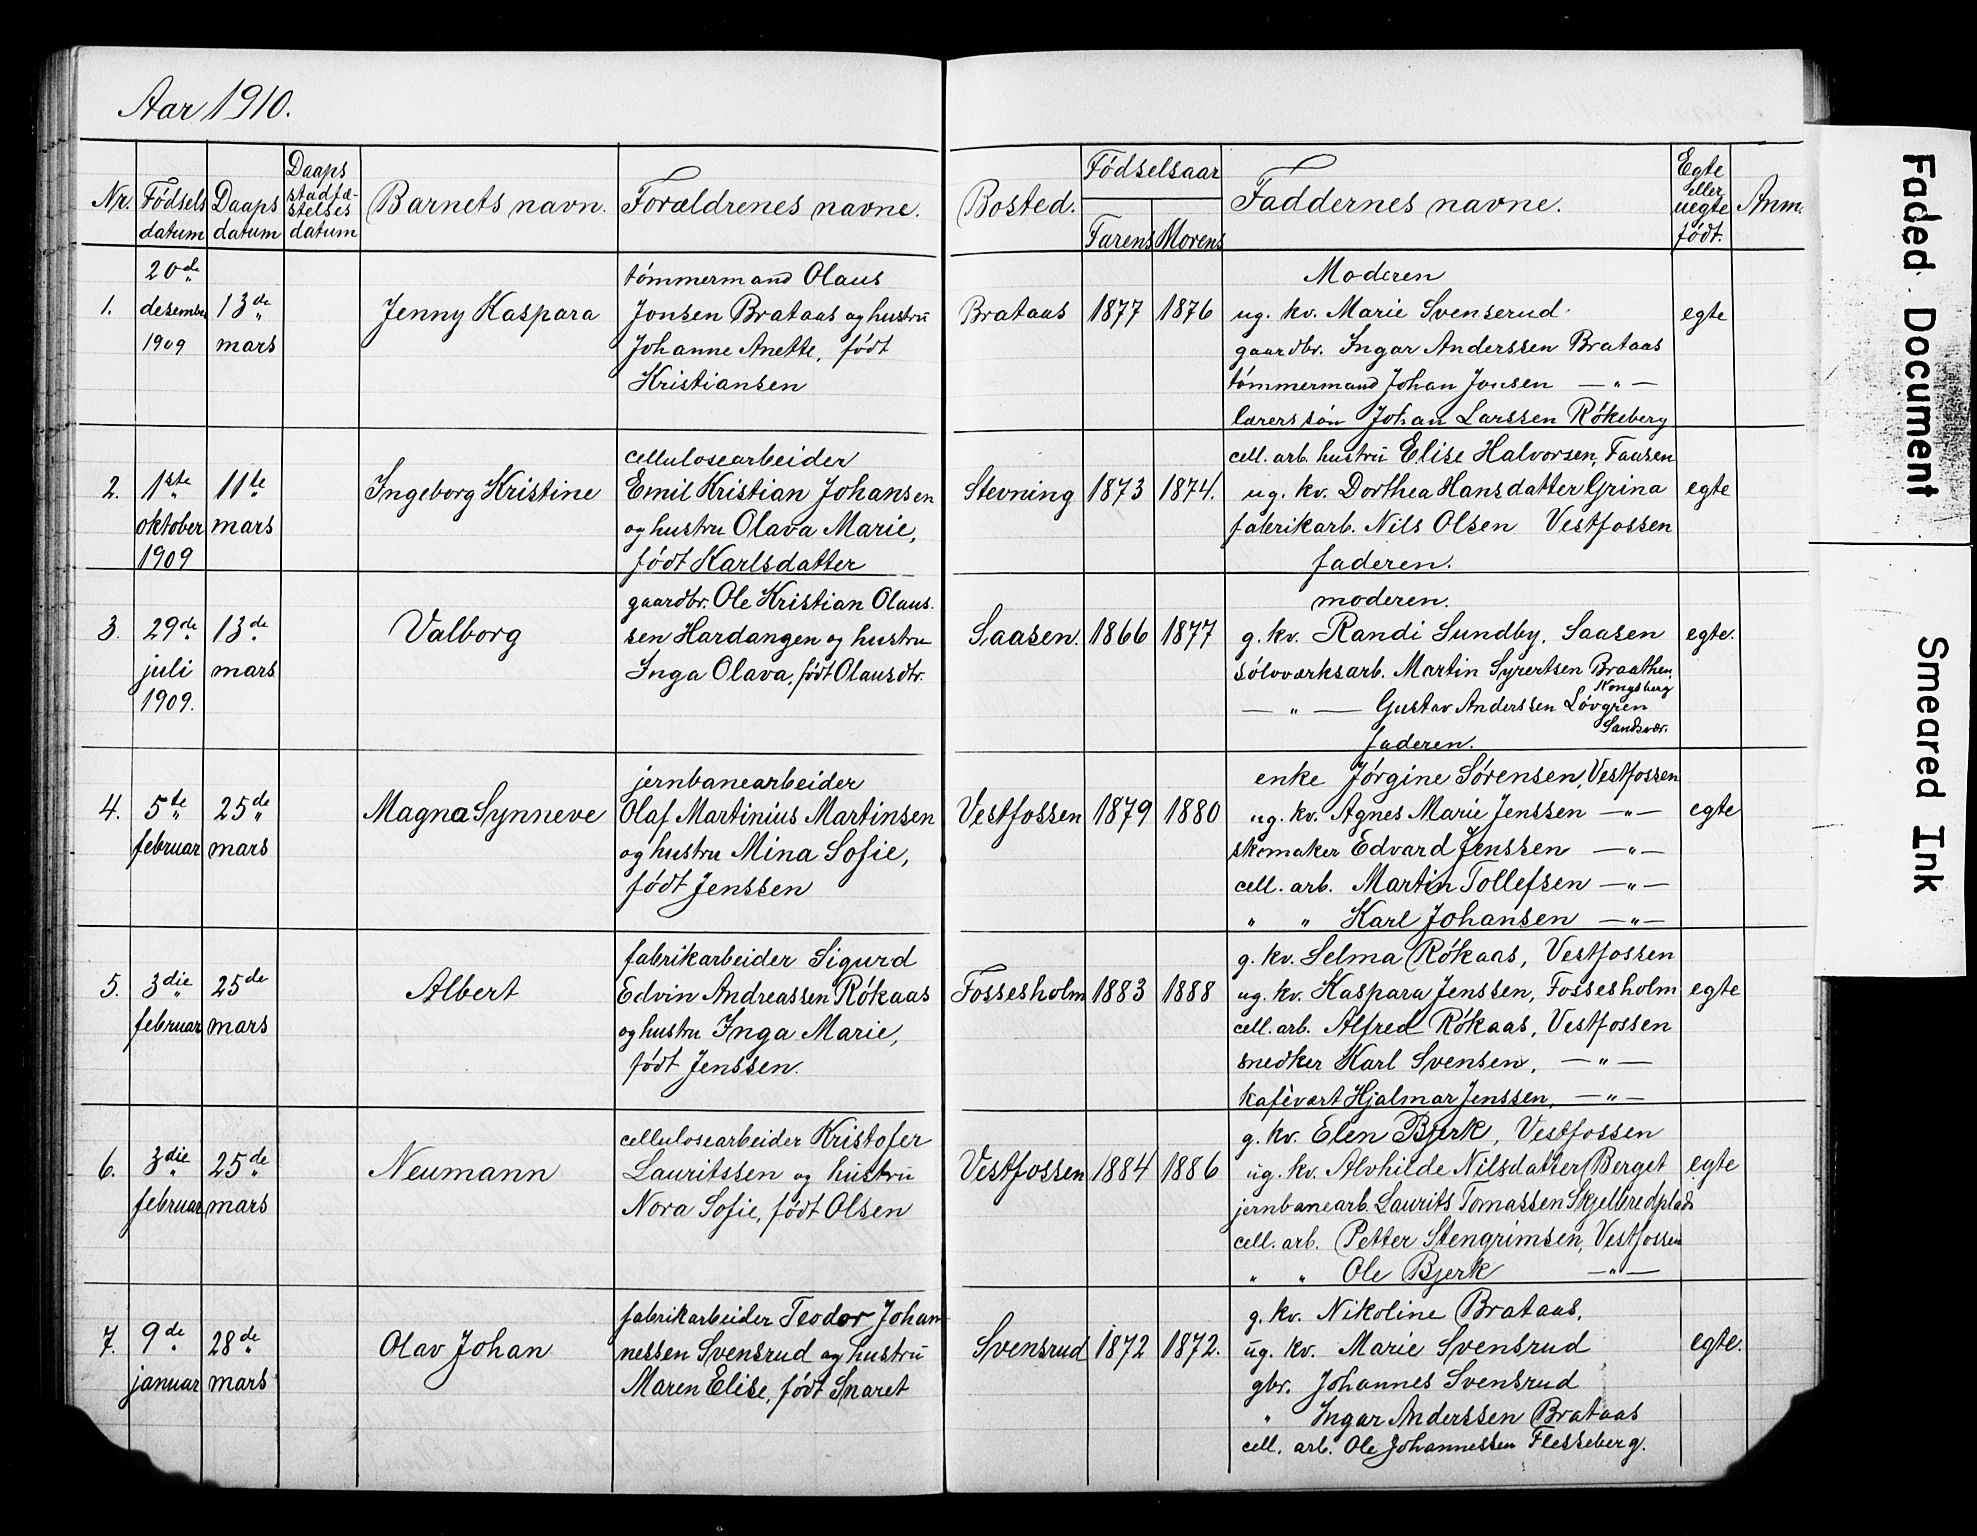 Aar 1910.
Nr.
Fødsels datum
Daaps datum
Daaps stadfæ-
stelses
datum
Barnets navn.
Forældrenes navne.
Bosted.
Fødselsaar
Farens
Morens
Faddernes navne.
Egte
eller
uegte
født.
Anm.
1.
20de
desember
1909
13de
mars
Jenny Kaspara
tømmermand Olaus
Jonsen Brataas og hustru
Johanne Anette, født
Kristiansen
Brataas
1877
1876
Moderen
ug. kv. Marie Svenserud
gaardbr. Ingar Anderssen Brataas
tømmermand Johan Jonsen — " —
lærers søn Johan Larssen Rökeberg
egte
2.
1ste
oktober
1909
11te
mars
Ingeborg Kristine
cellulosearbeider
Emil Kristian Johansen
og hustru Olava Marie,
født Karlsdatter
Stevning
1873
1874.
cell. arb. hustru Elise Halvorsen, Faasen
ug. kv. Dorthea Hansdatter Grina
fabrikarb. Nils Olsen Vestfossen
faderen.
egte
3.
29de
juli
1909.
13de
mars
Valborg
gaardbr. Ole Kristian Olaus.
sen Hardangen og hustru
Inga Olava, født Olausdtr.
Saasen.
1866
1877
moderen.
g. kv. Randi Sundby, Saasen
sølvværksarb. Martin Syvertsen Braathen,
Kongsberg
— " — Gustav Anderssen Løvgren
Sandsvær.
faderen.
egte.
4.
5te
februar
25de
mars
Magna Synneve
jernbanearbeider
Olaf Martinius Martinsen
og hustru Mina Sofie,
født Jenssen
Vestfossen
1879
1880
enke Jørgine Sørensen, Vestfossen
ug. kv. Agnes Marie Jenssen — " —
skomaker Edvard Jenssen — " —
cell. arb. Martin Tollefsen — " —
" " Karl Johansen — " —
egte
5.
3die
februar
25de
mars
Albert
fabrikarbeider Sigurd
Edvin Andreassen Rökaas
og hustru Inga Marie,
født Jenssen.
Fossesholm
1883
1888
g. kv. Selma Rökaas, Vestfossen
ug. kv. Kaspara Jenssen, Fossesholm
cell. arb. Alfred Rökaas, Vestfossen
snedker Karl Svensen, — " —
kafévært Hjalmar Jenssen, — " —
egte
6.
3die
februar
25de
mars
Neumann
cellulosearbeider Kristofer
Lauritssen og hustru
Nora Sofie, født Olsen
Vestfossen
1884
1886
g. kv. Elen Bjerk, Vestfossen
ug. kv. Alvhilde Nilsdatter Berget
jernbanearb. Laurits Tomassen Skjelbredplads
cell. arb. Petter Stengrimsen, Vestfossen
" " Ole Bjerk — " —
egte
7.
9de
januar
28de
mars
Olav Johan
fabrikarbeider Teodor Johan
nessen Svensrud og hustru
Maren Elise, født Snaret
Svensrud
1872
1872.
g. kv. Nikoline Brataas,
ug. kv. Marie Svensrud
gbr. Johannes Svensrud
" Ingar Anderssen Brataas
cell. arb. Ole Johannessen Flesseberg.
egte.
Faded Document
Smeared Ink